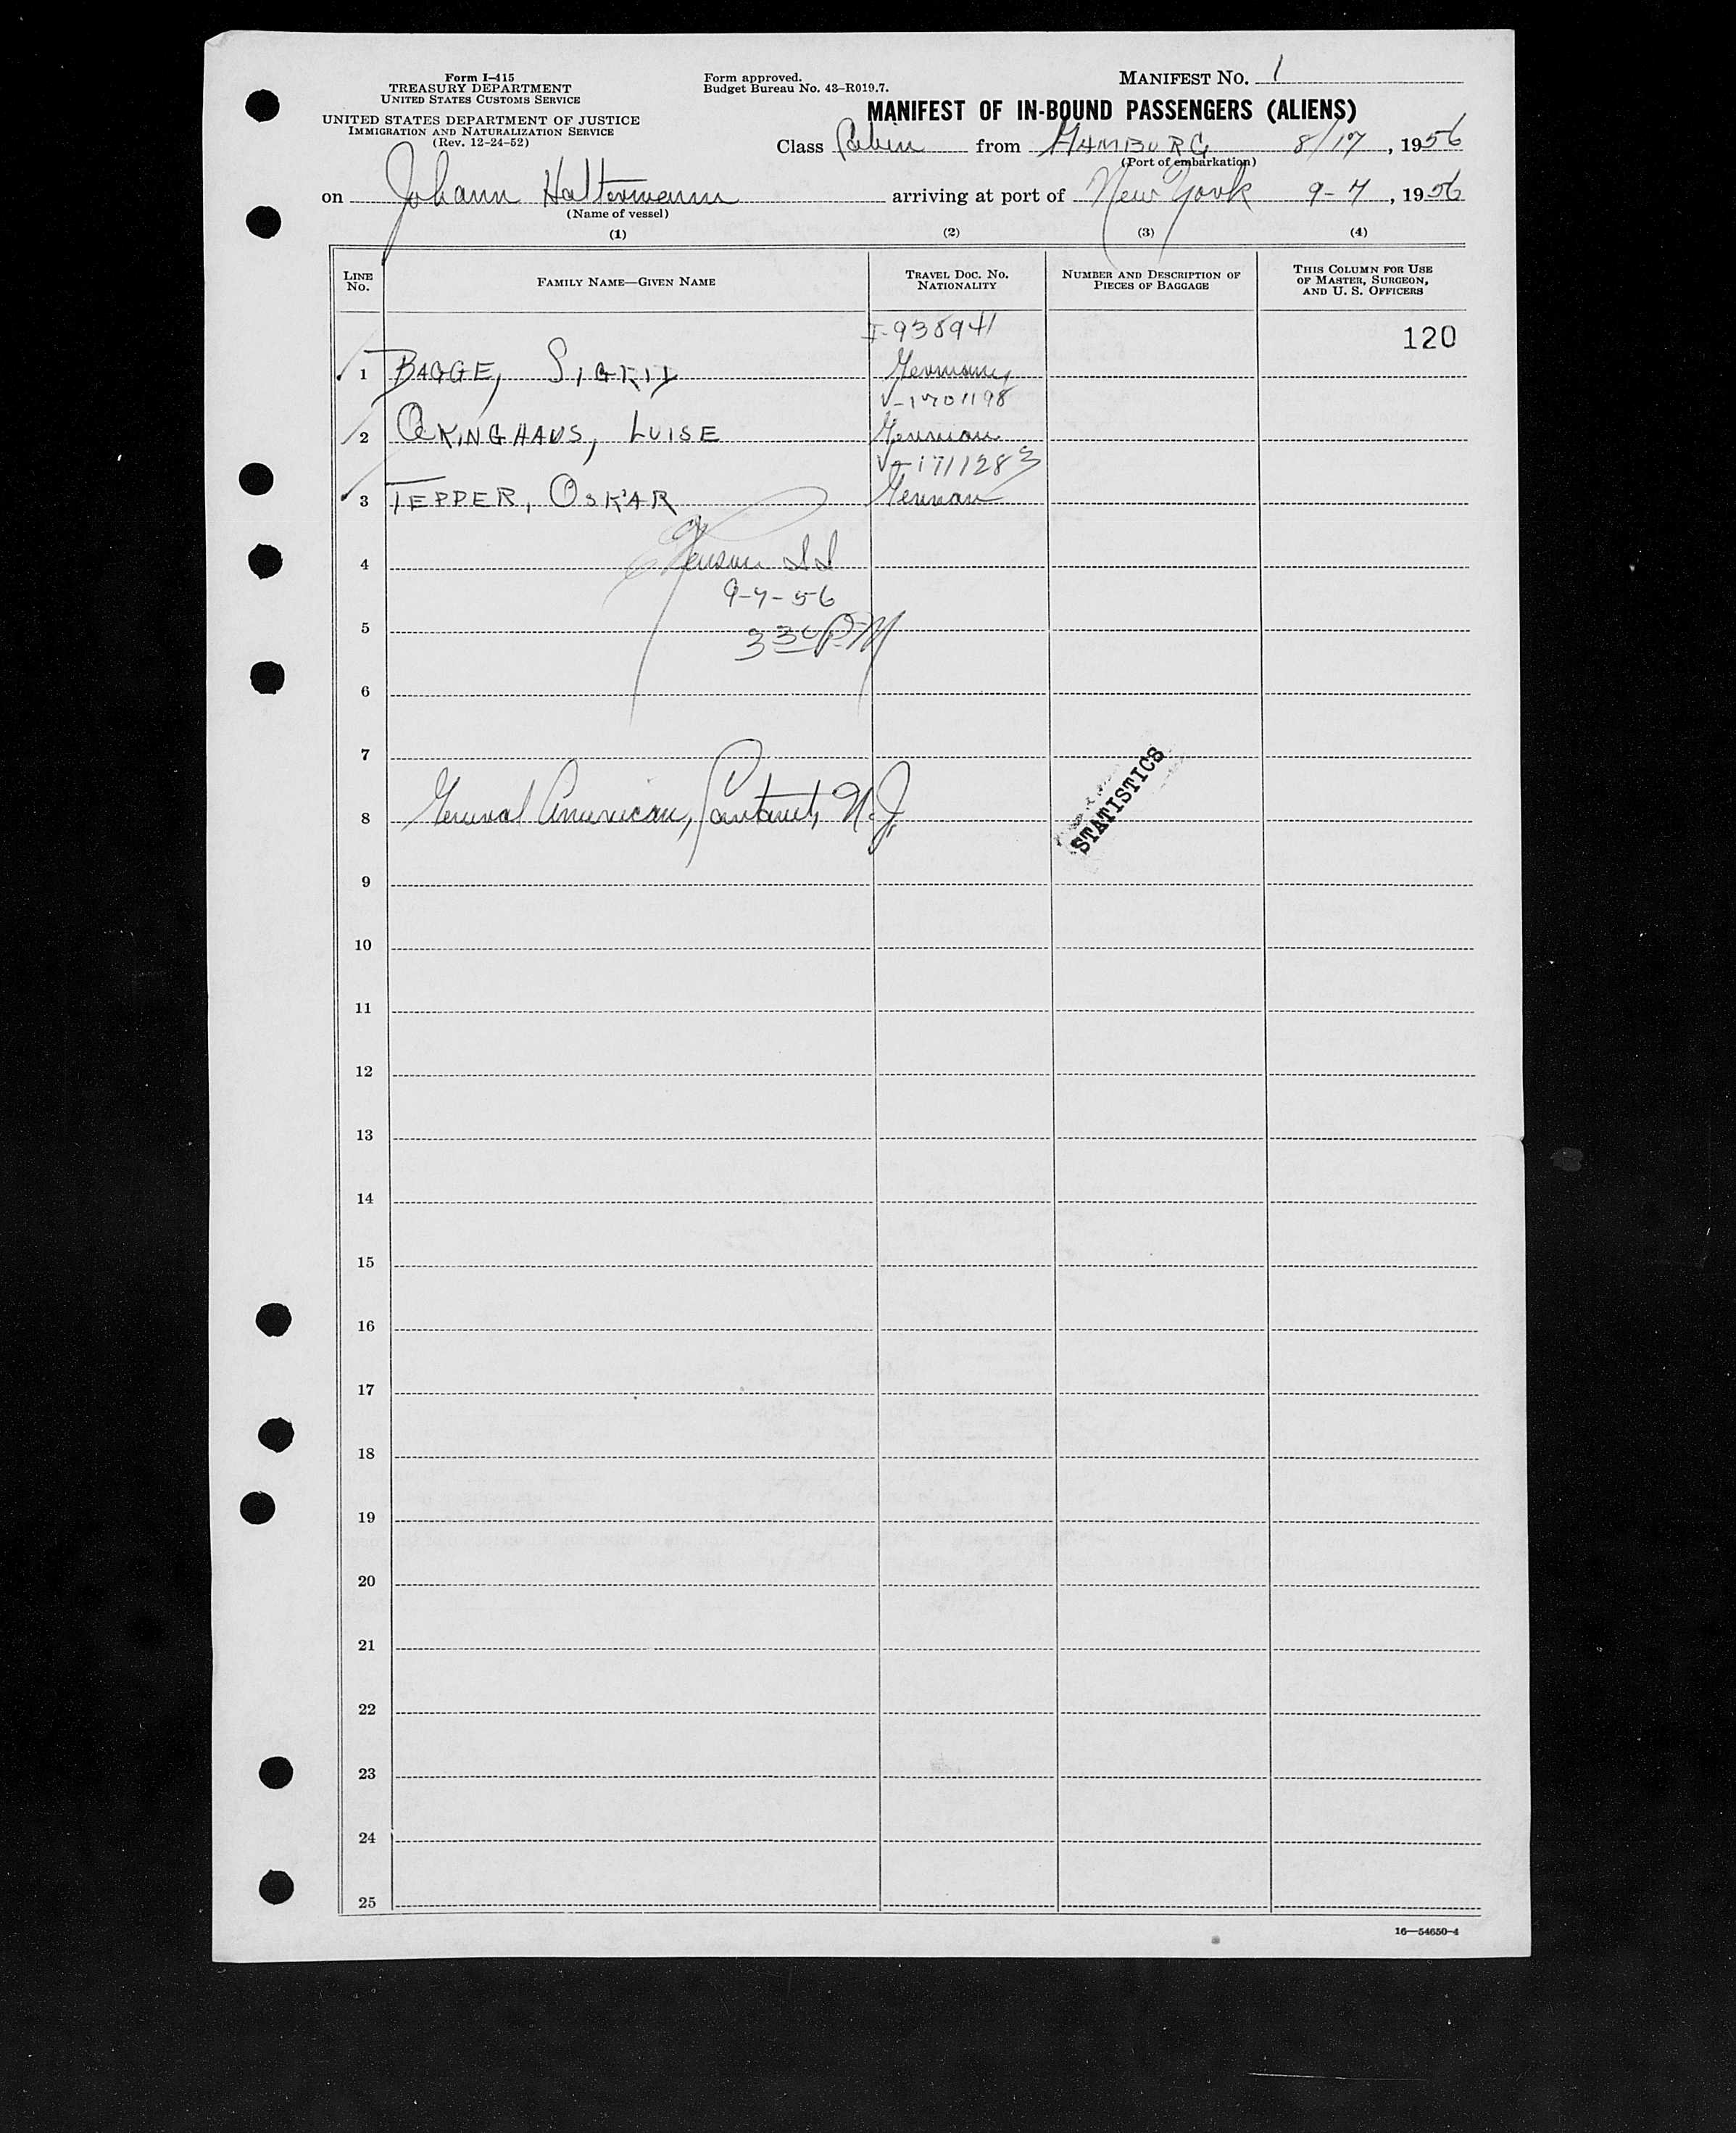 Form I-415
TREASURY DEPARTMENT
UNITED STATES CUSTOMS SERVICE
UNITED STATES DEPARTMENT OF JUSTICE
IMMIGRATION AND NATURALIZATION SERVICE
(Rev. 12-24-52)
Form approved.
Budget Bureau No. 43-R019.7.
MANIFEST NO. 1
MANIFEST OF IN-BOUND PASSENGERS (ALIENS)
Class Cabin from HAMBURG 8/17, 1956
(Port of embarkation)
on Johann Haltermann arriving at port of New York 9-7, 1956
(Name of vessel)
(1) (2) (3) (4)
LINE NO. FAMILY NAME—GIVEN NAME TRAVEL DOC. NO. NATIONALITY NUMBER AND DESCRIPTION OF PIECES OF BAGGAGE THIS COLUMN FOR USE OF MASTER, SURGEON, AND U. S. OFFICERS
I-938941 120
1 BAGGE, SIGRID Germany
V-1701198
2 OKINGHAUS, LUISE German
V-1711283
3 TEPPER, OSKAR German
4
9-7-56
5 3 30 PM
6
7
STATISTICS
8 General American, Carteret, N.J.
9
10
11
12
13
14
15
16
17
18
19
20
21
22
23
24
25
16—54650-4